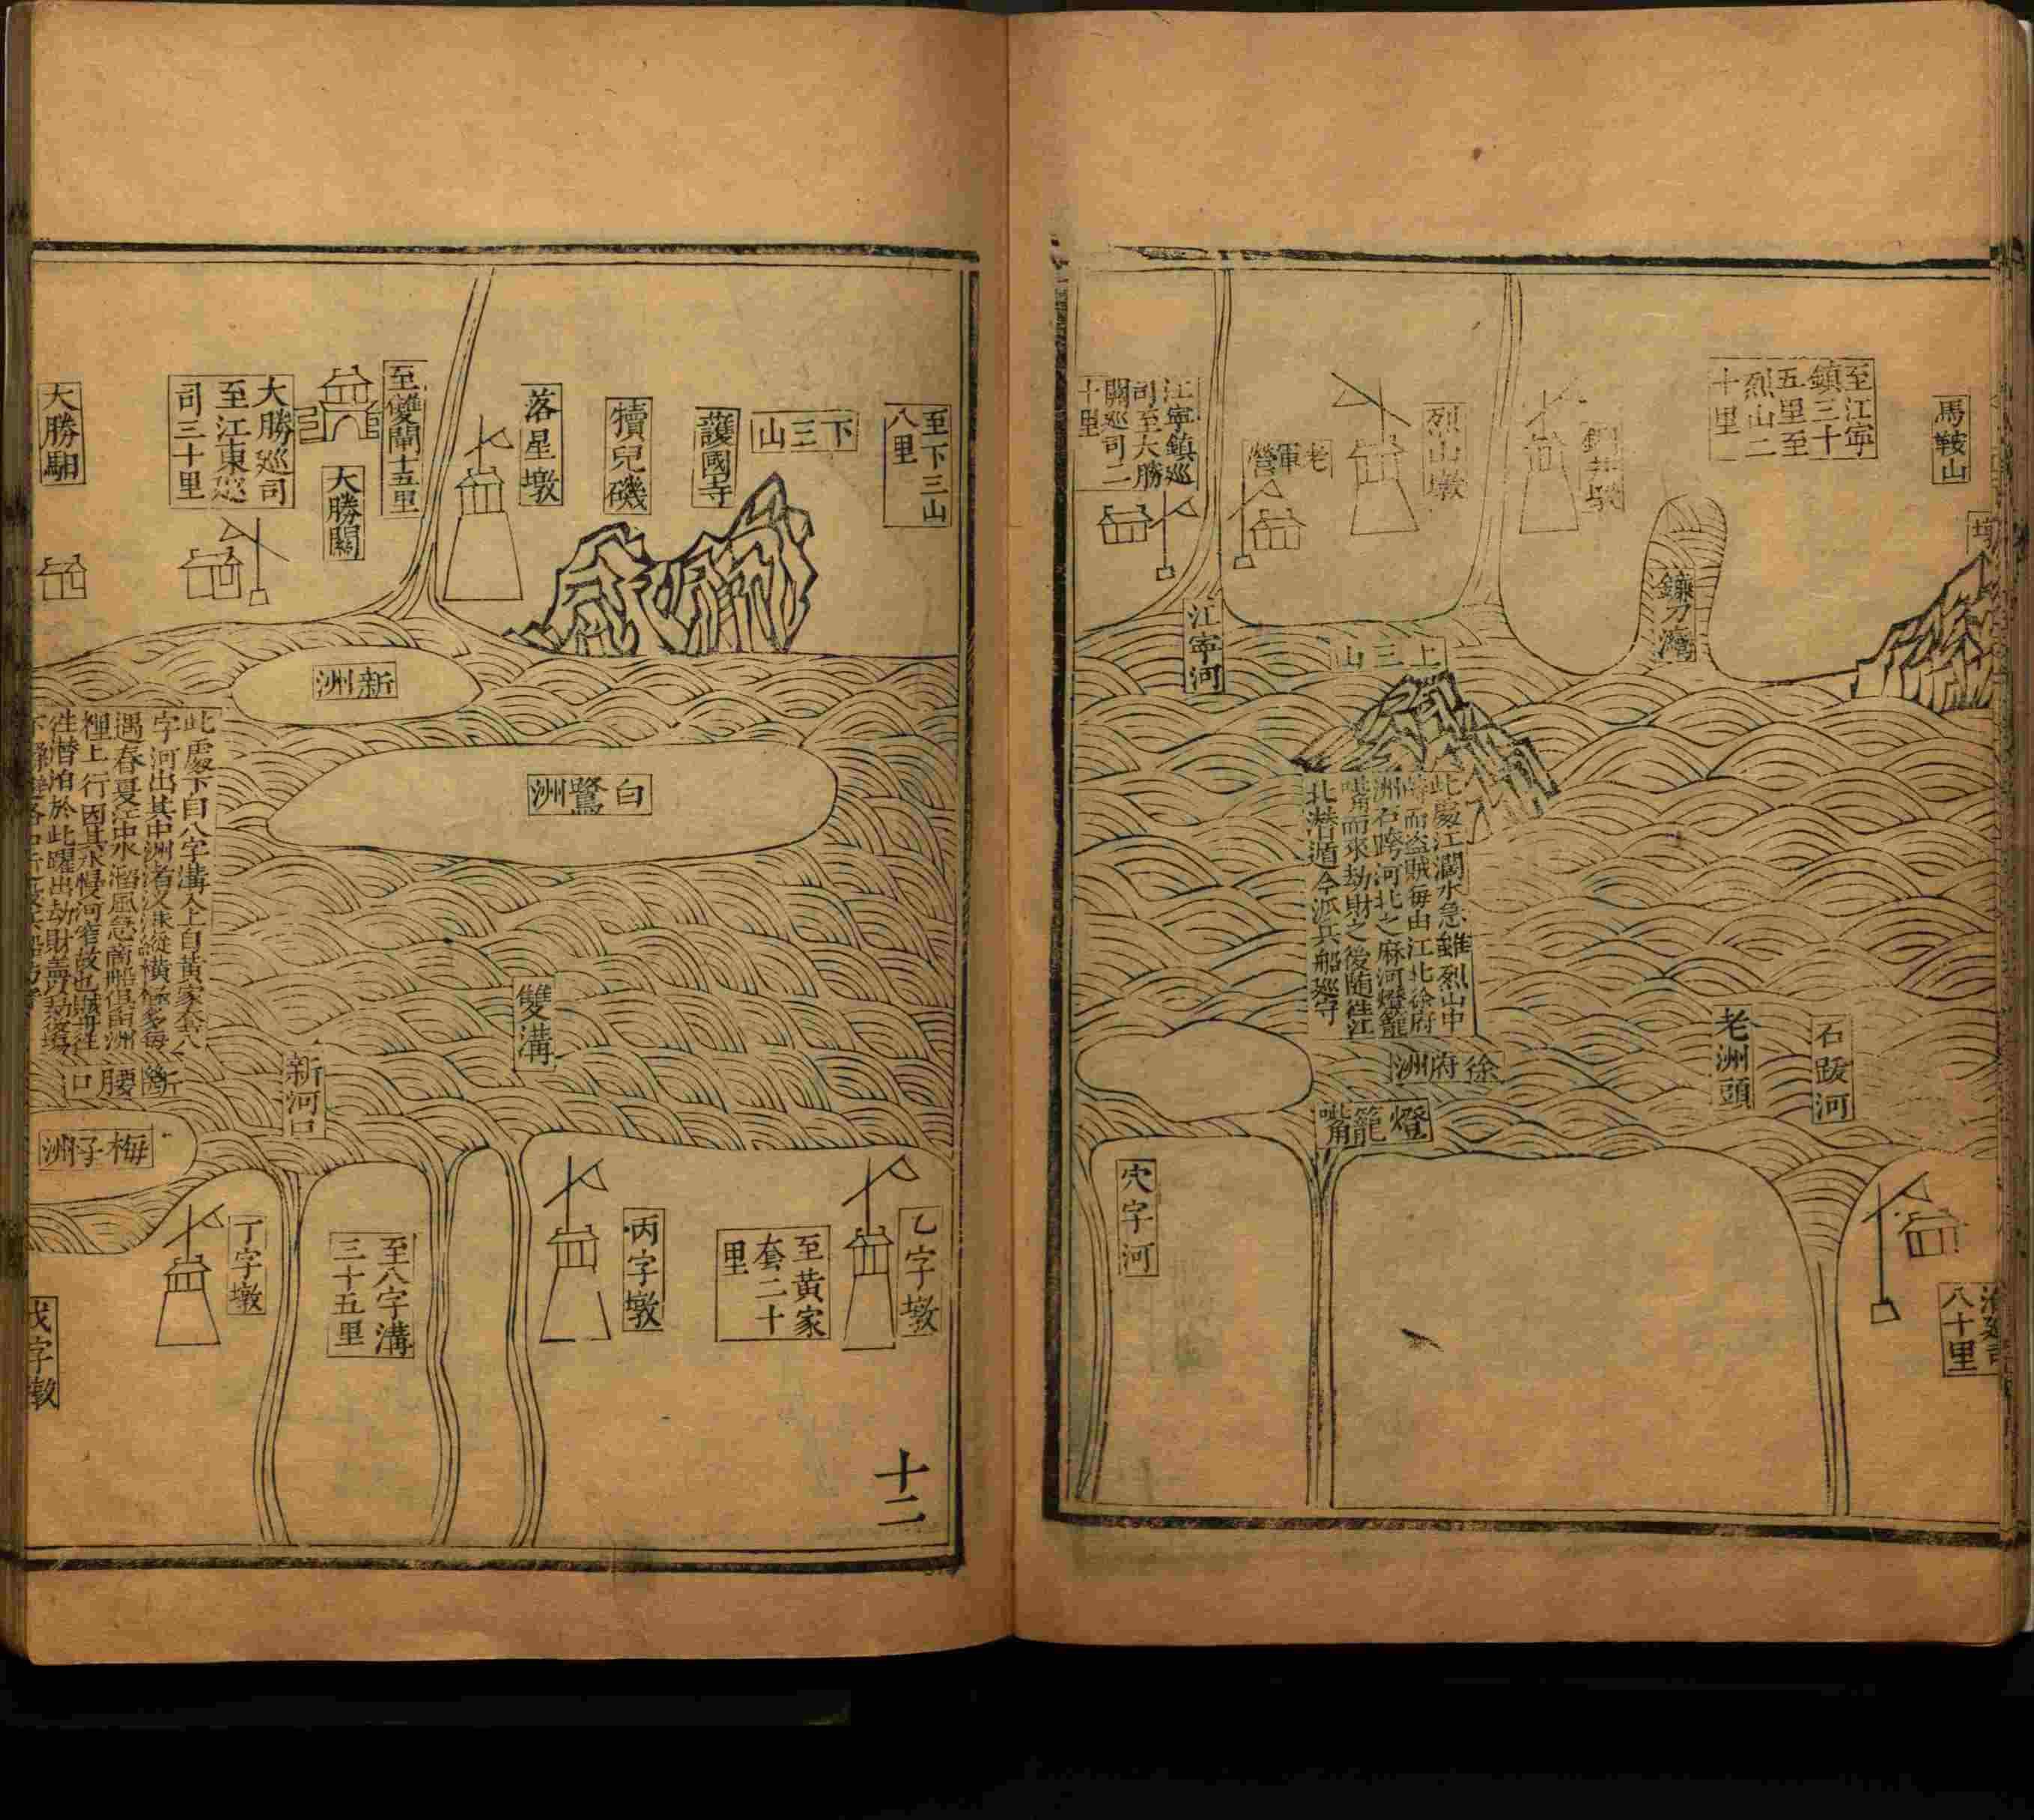 馬鞍山
至江寧
鎮三十
五里至
烈山二
十里
鐮刀灣
烈山墩
老軍營
江寧鎮巡
司至大勝
關巡司二
十里
江寧河
上三山
此處江濶水急雖烈山中
而盜賊每由江北徐府
洲石跨河北之麻河燈籠
嘴而來劫財之後随徃江
北潜遁今派兵船廵守
徐府洲
燈籠嘴
老洲頭
石跋河
穴字河
八十里
至下三山
八里
下三山
護國寺
犢兒磯
落星墩
至雙閘十五里
大勝關
大勝巡司
至江東巡
司三十里
大勝馹
新洲
白鷺洲
此處下自八字溝入上自黃家套八
字河出其中洲渚汊港縱橫極多每
遇春夏江中水溜風急商船俱由洲
裡上行因其水慢河窄故也賊每往
徃潜泊於此躍出劫財
雙溝
新河口
斷腰口
梅子洲
乙字墩
至黃家
套二十
里
丙字墩
至八字溝
三十五里
丁字墩
戊字墩
十二